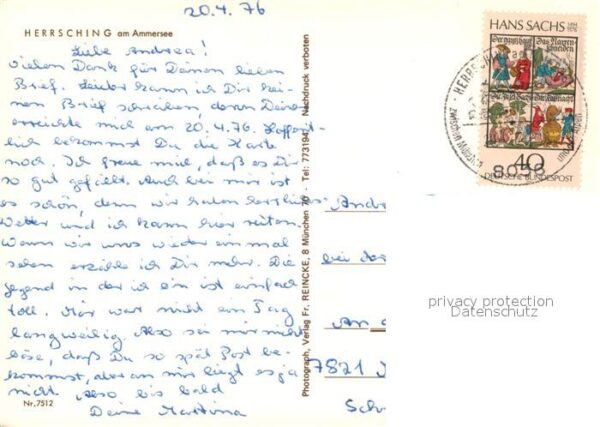 20.4.76
HERRSCHING am Ammersee
Liebe Andrea!
Vielen Dank für Deinen lieben
Brief. Leider kann ich Dir kei-
nen Brief schreiben, denn Deiner
erreichte mich am 20.4.76. Hoffent-
lich bekommst Du die Karte
noch. Ich freue mich, daß es Dir
so gut gefällt. Auch bei mir ist
es schön, denn wir haben herrliches
Wetter und ich kann hier reiten.
Wenn wir uns wieder einmal
sehen erzähle ich Dir mehr. Die
Gegend in der ich bin ist einfach
toll. Mir war nicht ein Tag
langweilig. Also sei mir nicht
böse, daß Du so spät Post be-
kommst, aber an mir liegt es ja
nicht. Also bis bald
Deine Martina
Nr. 7512
Photograph, Verlag Fr. REINCKE, 8 München 70 - Tel: 773194 Nachdruck verboten
HANS SACHS 1494 1576
40
DEUTSCHE BUNDESPOST
8036
Andre
bei der
An d
7821
Sch
privacy protection
Datenschutz